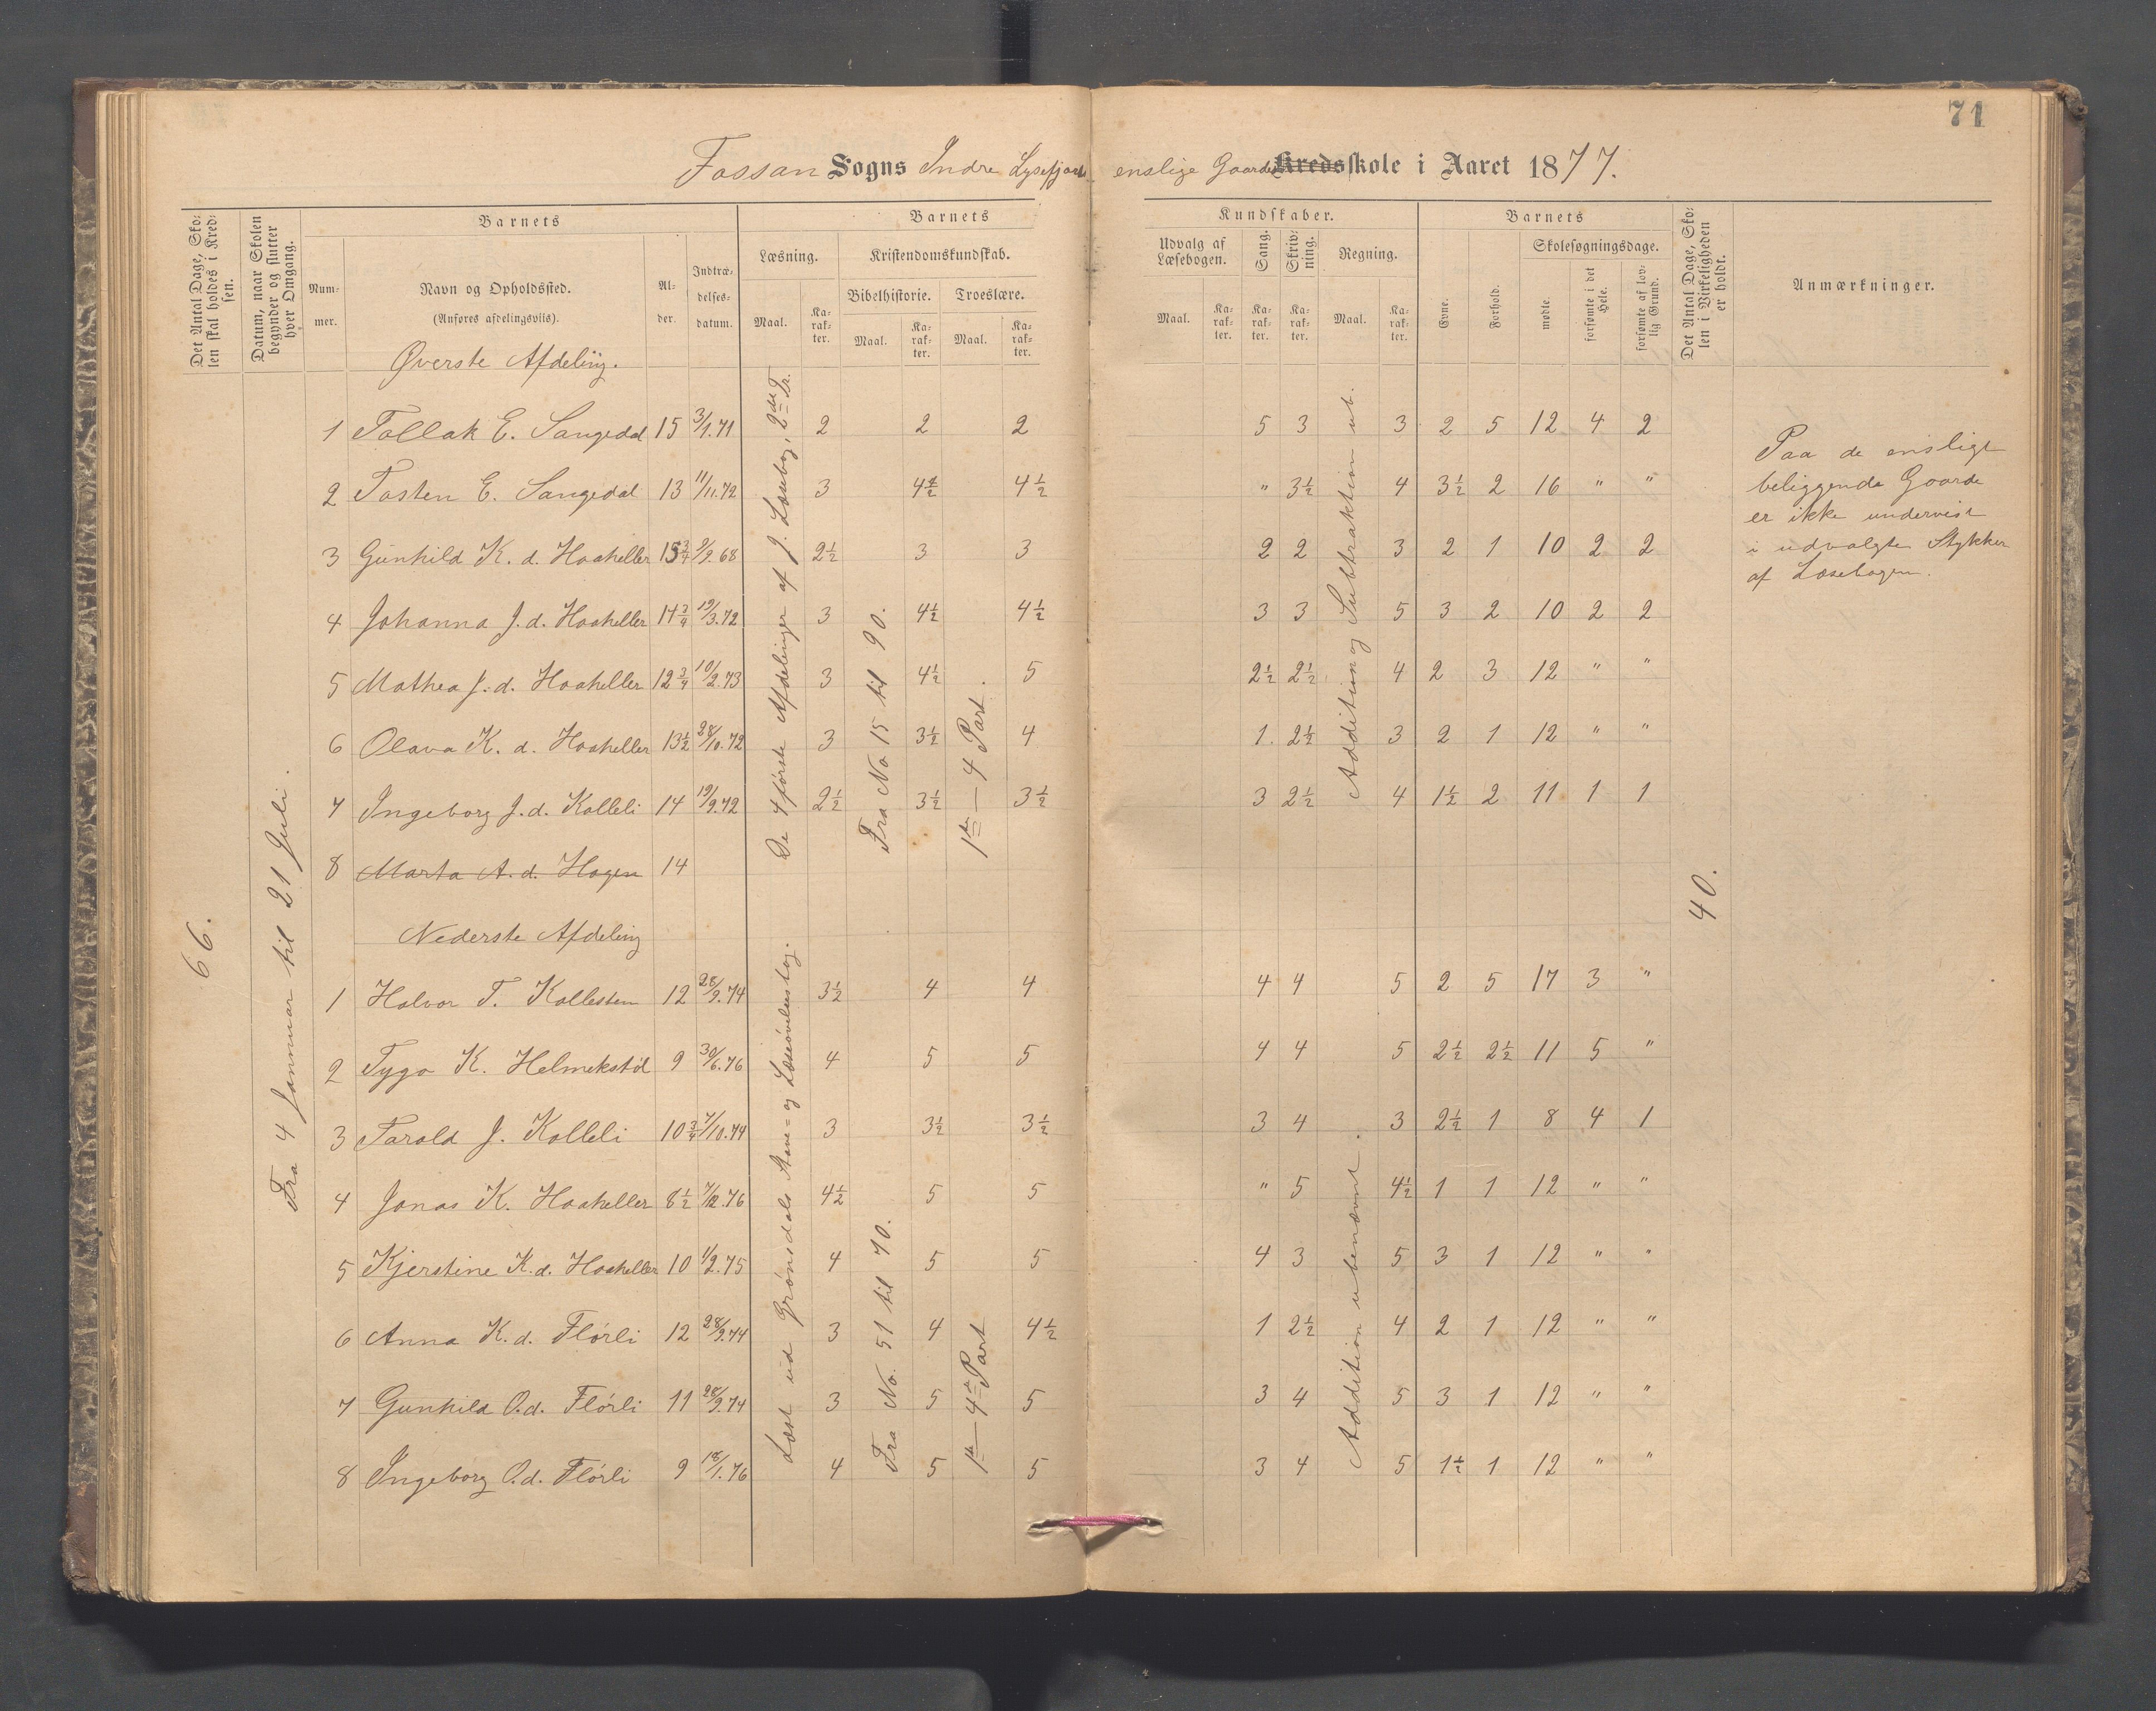 71
Fossan Sogns Indre Lysefjords enslige Gaarde Kredsskole i Aaret 1877.
Det Antal Dage, Skolen skal holdes i Kredsen.
Datum, naar Skolen begynder og slutter hver Omgang.
Barnets
Nummer.
Navn og Opholdssted.
(Anføres afdelingsviis).
Alder.
Indtrædelsesdatum.
Barnets
Læsning.
Kristendomskundskab.
Bibelhistorie.
Troeslære.
Maal. Karakter. Maal. Karakter. Maal. Karakter.
Kundskaber.
Udvalg af Læsebogen.
Sang. Skrivning. Regning.
Maal. Karakter. Karakter. Karakter. Maal. Karakter.
Barnets
Evne. Forhold.
Skolesøgningsdage.
mødte. forsømte i det Hele. forsømte af lovlig Grund.
Det Antal Dage, Skolen i Virkeligheden er holdt.
Anmærkninger.
66.
Fra 4 Januar til 21 Juli.
Øverste Afdeling.
1 Tollak E. Sangedal 15 3/1.71 2 2 2 5 3 3 2 5 12 4 2
2 Tosten E. Sangedal 13 11/11.72 3 4½ 4½ " 3½ 4 3½ 2 16 " "
3 Gunhild K. d. Haaheller 15¾ 9/2.68 2½ 3 3 2 2 3 2 1 10 2 2
4 Johanna J. d. Haaheller 14¾ 19/3.72 3 4½ 4½ 3 3 5 3 2 10 2 2
5 Mathea J. d. Haaheller 12¾ 10/2.73 3 4½ 5 2½ 2½ 4 2 3 12 " "
6 Olava K. d. Haaheller 13½ 28/10.72 3 3½ 4 1 2½ 3 2 1 12 " "
7 Ingeborg J. d. Kalleli 14 19/9.72 2½ 3½ 3½ 3 2½ 4 1½ 2 11 1 1
8 Marta A. d. Hagen 14
De 4 første Afdelinger af J. Læsebog, 2det Tr.
Fra No 15 til 90.
1ste — 4 Part.
Addition og Subtraktion ub.
Paa de ensligt
beliggende Gaarde
er ikke undervist
i udvalgte Stykker
af Læsebogen.
40.
Nederste Afdeling
1 Halvor T. Kallesten 12 28/9.74 3½ 4 4 4 4 5 2 5 17 3 "
2 Tygo K. Helmekstøl 9 30/6.76 4 5 5 4 4 5 2½ 2½ 11 5 "
3 Tarald J. Kalleli 10¾ 7/10.74 3 3½ 3½ 3 4 3 2½ 1 8 4 1
4 Jonas K. Haaheller 8½ 7/12.76 4½ 5 5 " 5 4½ 1 1 12 " "
5 Kjerstine K. d. Haaheller 10 1/2.75 4 5 5 4 3 5 3 1 12 " "
6 Anna K. d. Flørli 12 28/9.74 3 4 4½ 1 2½ 4 2 1 12 " "
7 Gunhild O. d. Flørli 11 28/9.74 3 5 5 3 4 5 3 1 12 " "
8 Ingeborg O. d. Flørli 9 18/1.76 4 5 5 3 4 5 1½ 1 12 " "
Læst ud Grønsdals Stave- og Læseøvelsesbog.
Fra No. 51 til 70.
1ste — 4de Part
Addition ubenævnt.